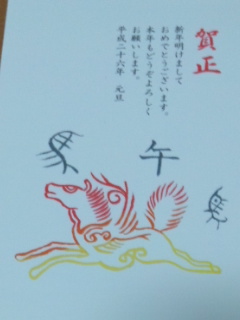 賀正
新年明けまして
おめでとうございます。
本年もどうぞよろしく
お願いします。
平成二十六年 元旦
午